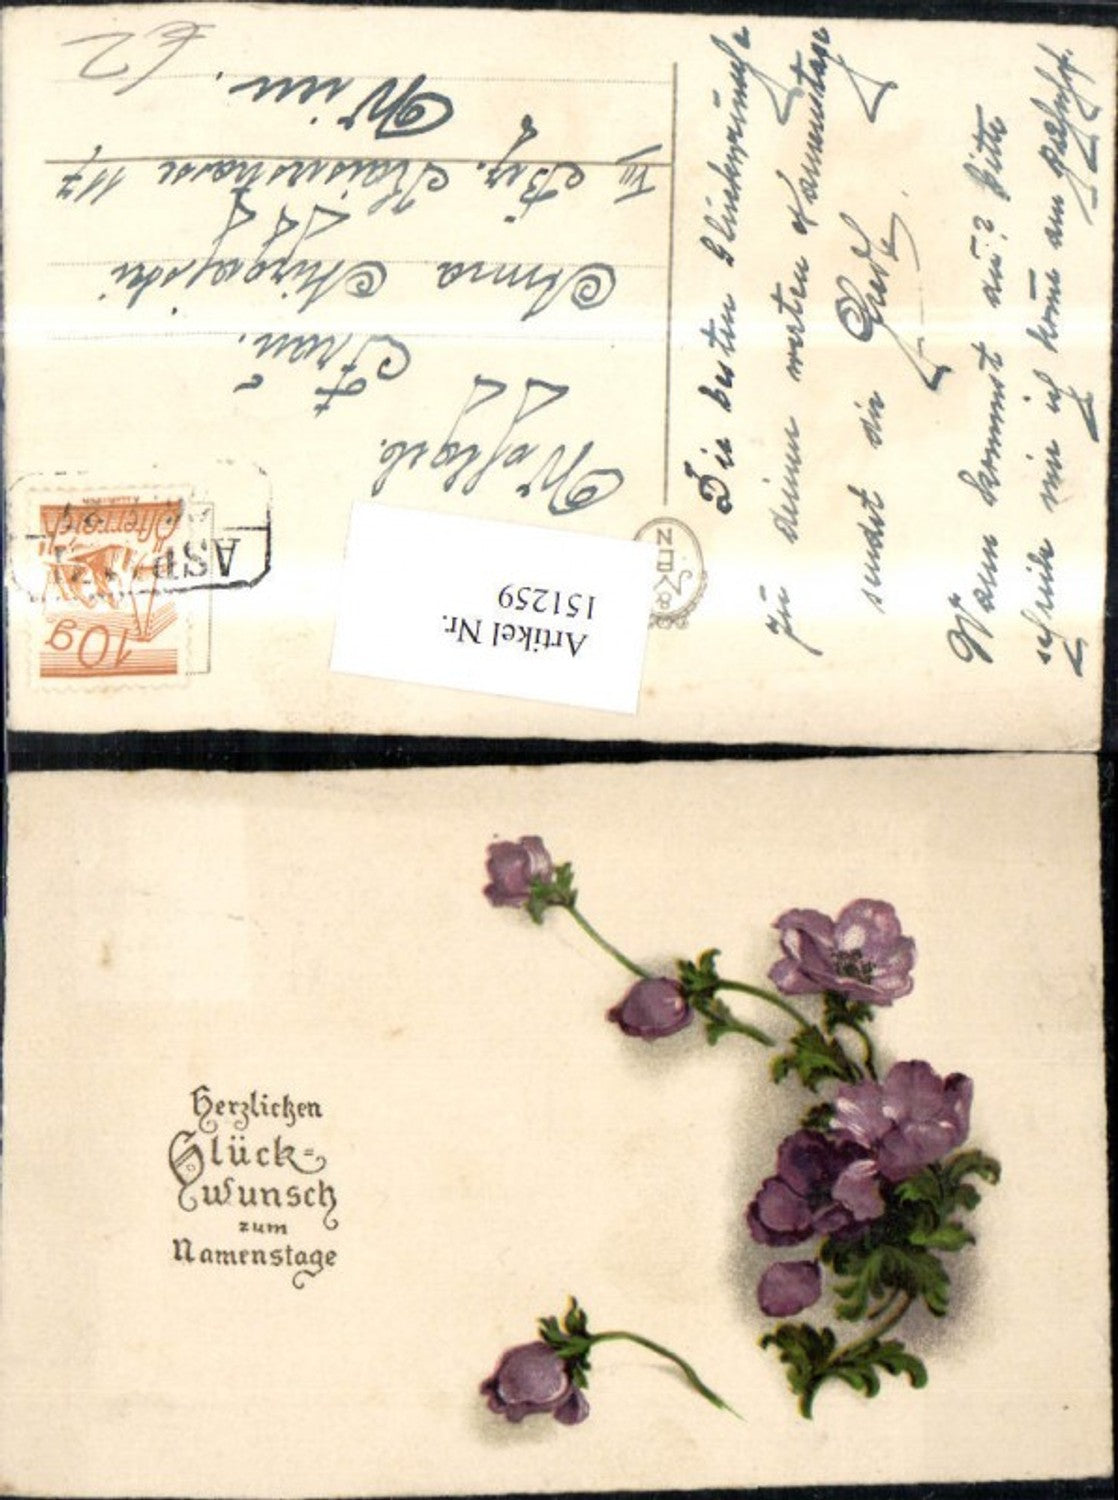 Die besten Glückwünsche
zu deinem werten Namenstage
sendet dir
Gretl.
Wann kommst du? Bitte
schreib mir ich kome am Bahnhf.
Wohlgeb.
Frau
Anna
VII Bez. Kaiserstrasse 117
Wien.
62
10g
Österreich
ASPA
WIEN
Artikel Nr.
151259
Herzlichen
Glück-
wunsch
zum
Namenstage